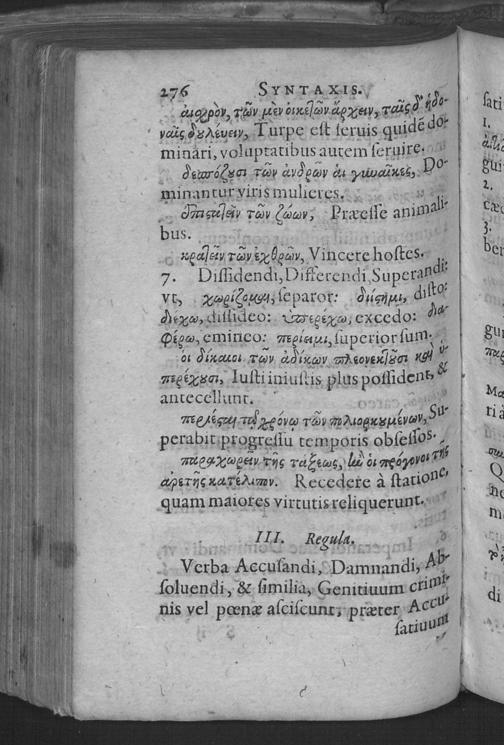 276 SYNTAXIS.
αἰσχρὸν, τῶν μὲν οἰκετῶν ἄρχειν, ταῖς δ' ἡδο-
ναῖς δουλεύειν, Turpe est seruis quidē do-
minari, voluptatibus autem seruire.
δεσπόζουσι τῶν ἀνδρῶν αἱ γυναῖκες, Do-
minantur viris mulieres.
ἐπιστατεῖν τῶν ζώων, Præesse animali-
bus.
κρατεῖν τῶν ἐχθρῶν, Vincere hostes.
7. Dissidendi, Differendi, Superandi:
vt, χωρίζομαι, separor: διΐστημι, disto:
διέχω, dissideo: ὑπερέχω, excedo: δια-
φέρω, emineo: περίειμι, superior sum.
οἱ δίκαιοι τῶν ἀδίκων πλεονεκτοῦσι καὶ ὑ-
περέχουσι, Iusti iniustis plus possident, &
antecellunt.
περιέσται τῷ χρόνῳ τῶν πολιορκουμένων, Su-
perabit progressu temporis obsessos.
παραχωρεῖν τῆς τάξεως, ἣν οἱ πρόγονοι τῆς
ἀρετῆς κατέλιπον. Recedere à statione,
quam maiores virtutis reliquerunt.
III. Regula.
Verba Accusandi, Damnandi, Ab-
soluendi, & similia, Genitiuum crimi-
nis vel pœnæ asciscunt, præter Accu-
satiuum